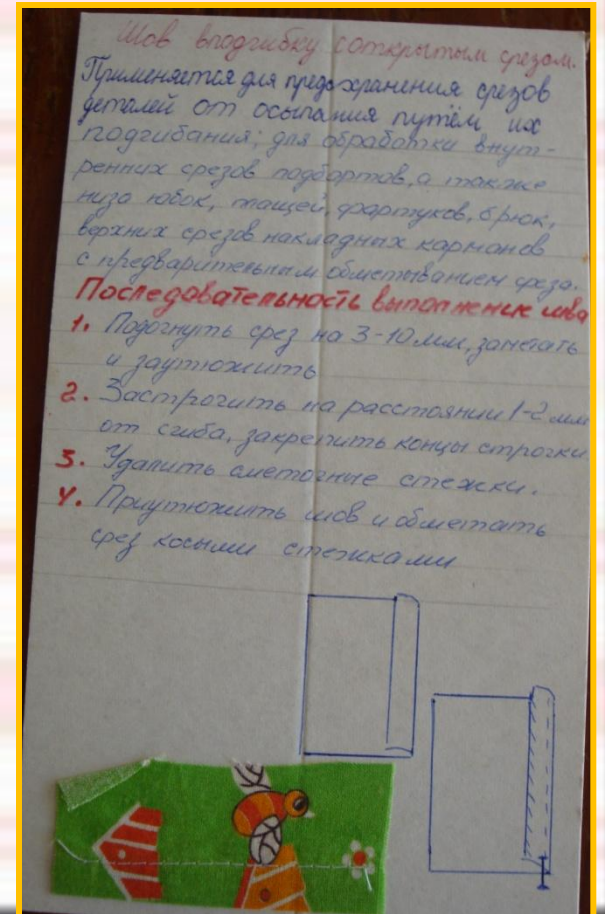 Шов вподгибку с открытым срезом.
Применяется для предохранения срезов
деталей от осыпания путём их
подгибания; для обработки внут-
ренних срезов подбортов, а также
низа юбок, плащей, фартуков, брюк,
верхних срезов накладных карманов
с предварительным обметыванием среза.
Последовательность выполнение шва
1. Подогнуть срез на 3-10 мм, заметать
и заутюжить
2. Застрочить на расстоянии 1-2 мм
от сгиба, закрепить концы строчки
3. Удалить сметочные стежки.
4. Приутюжить шов и обметать
срез косыми стежками